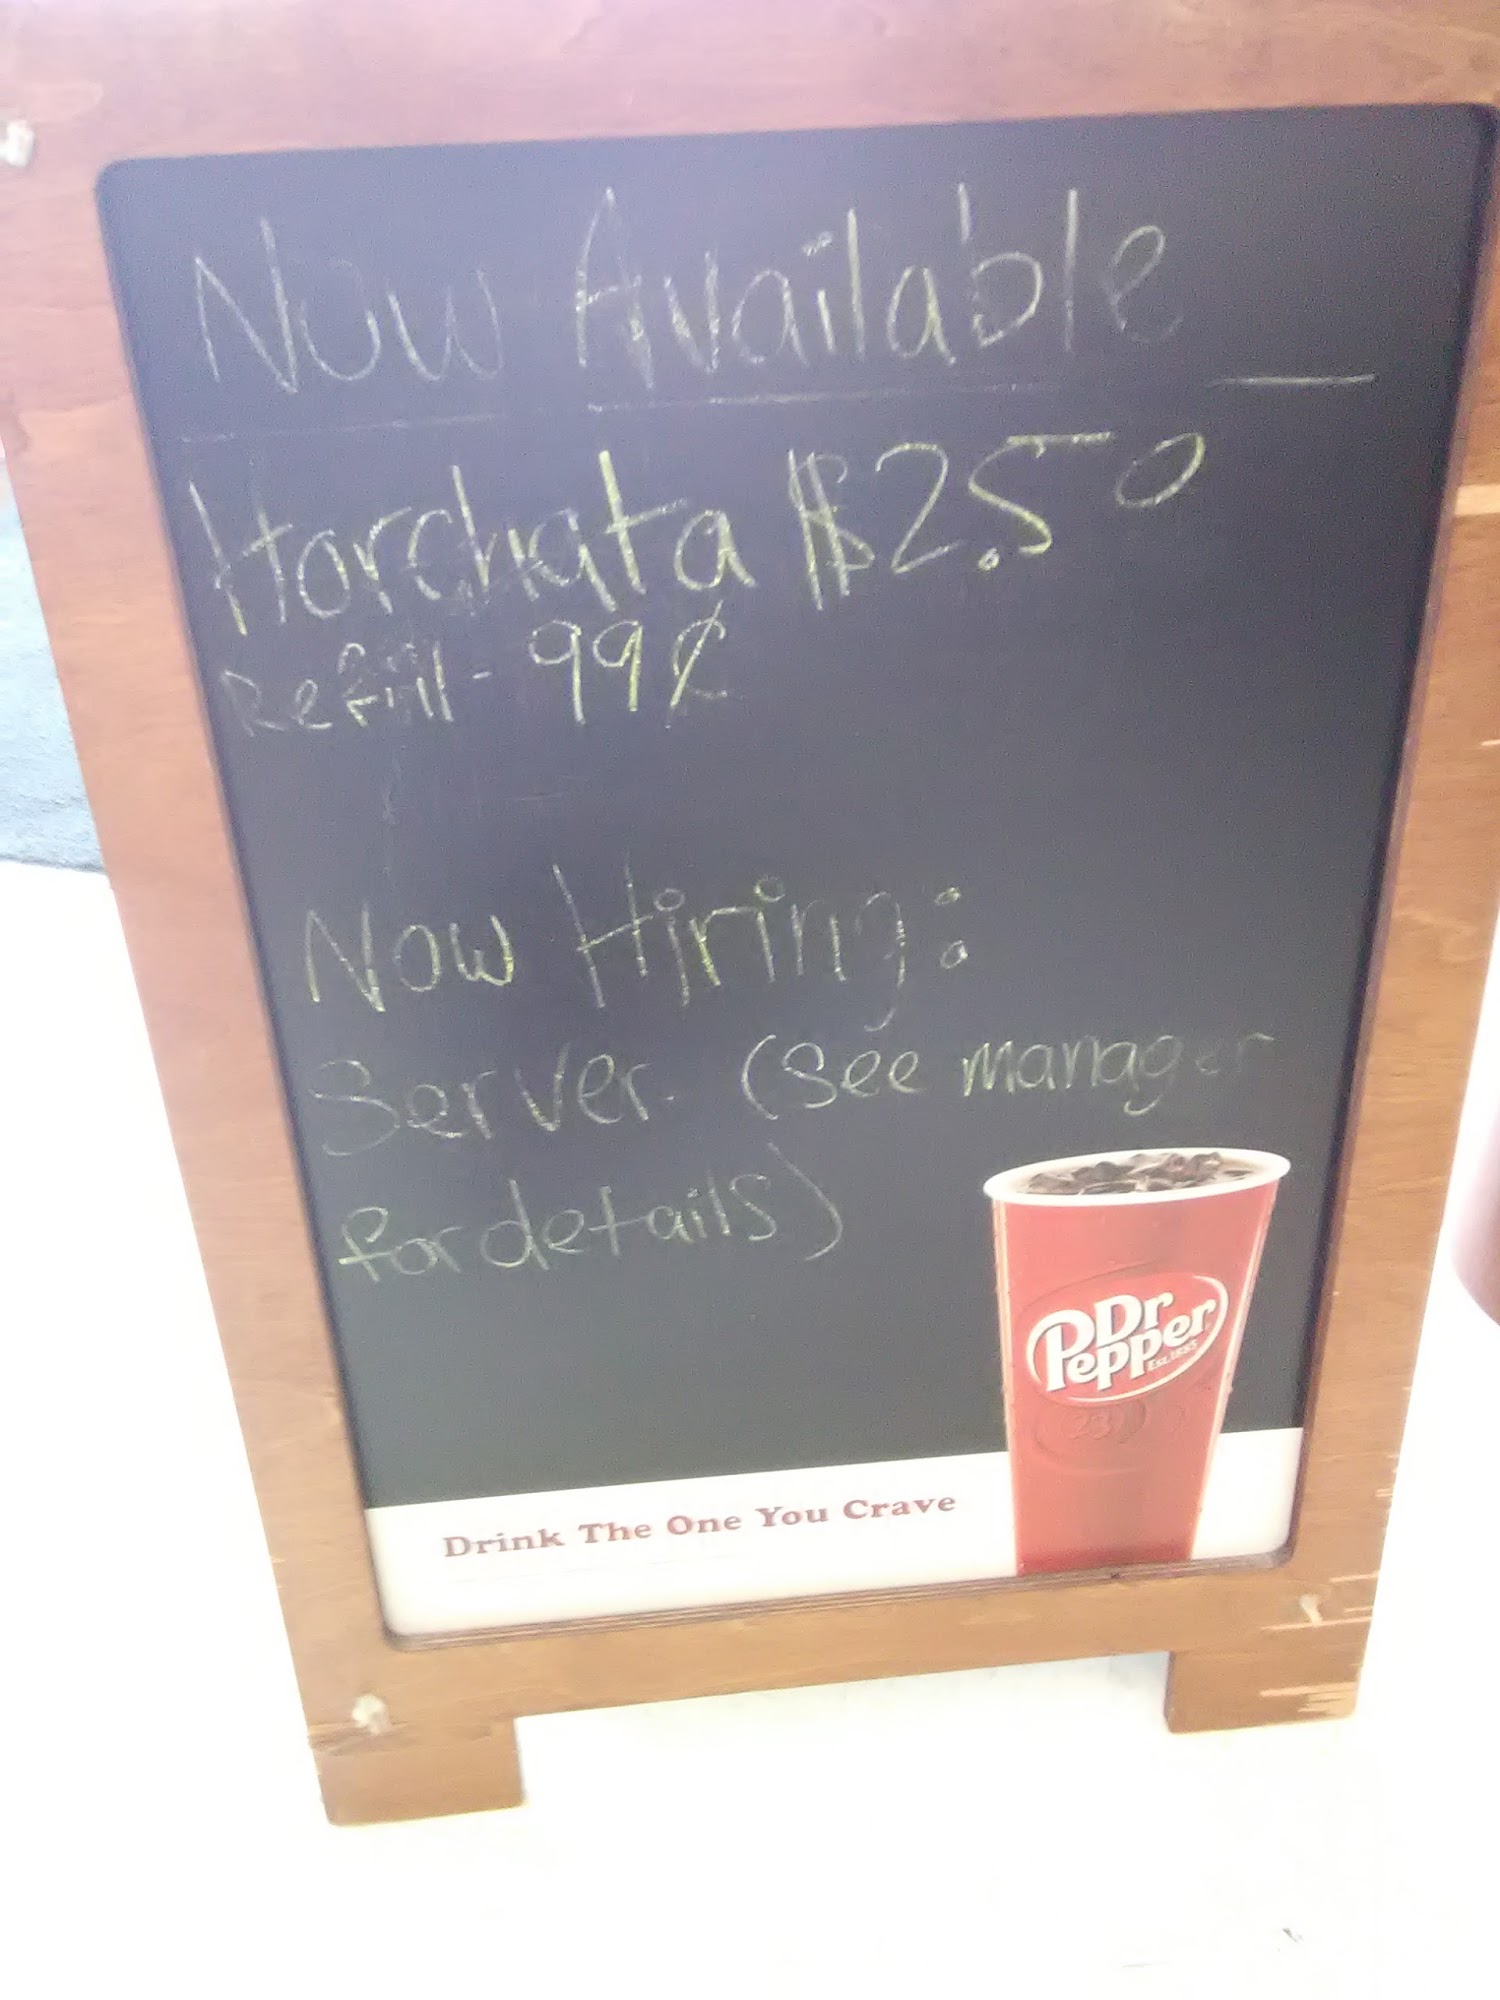 Now Available
Horchata $2.50
Refill - 99¢
Now Hiring:
Server (see manager
for details)
Dr
Pepper
Est. 1885
23
Drink The One You Crave